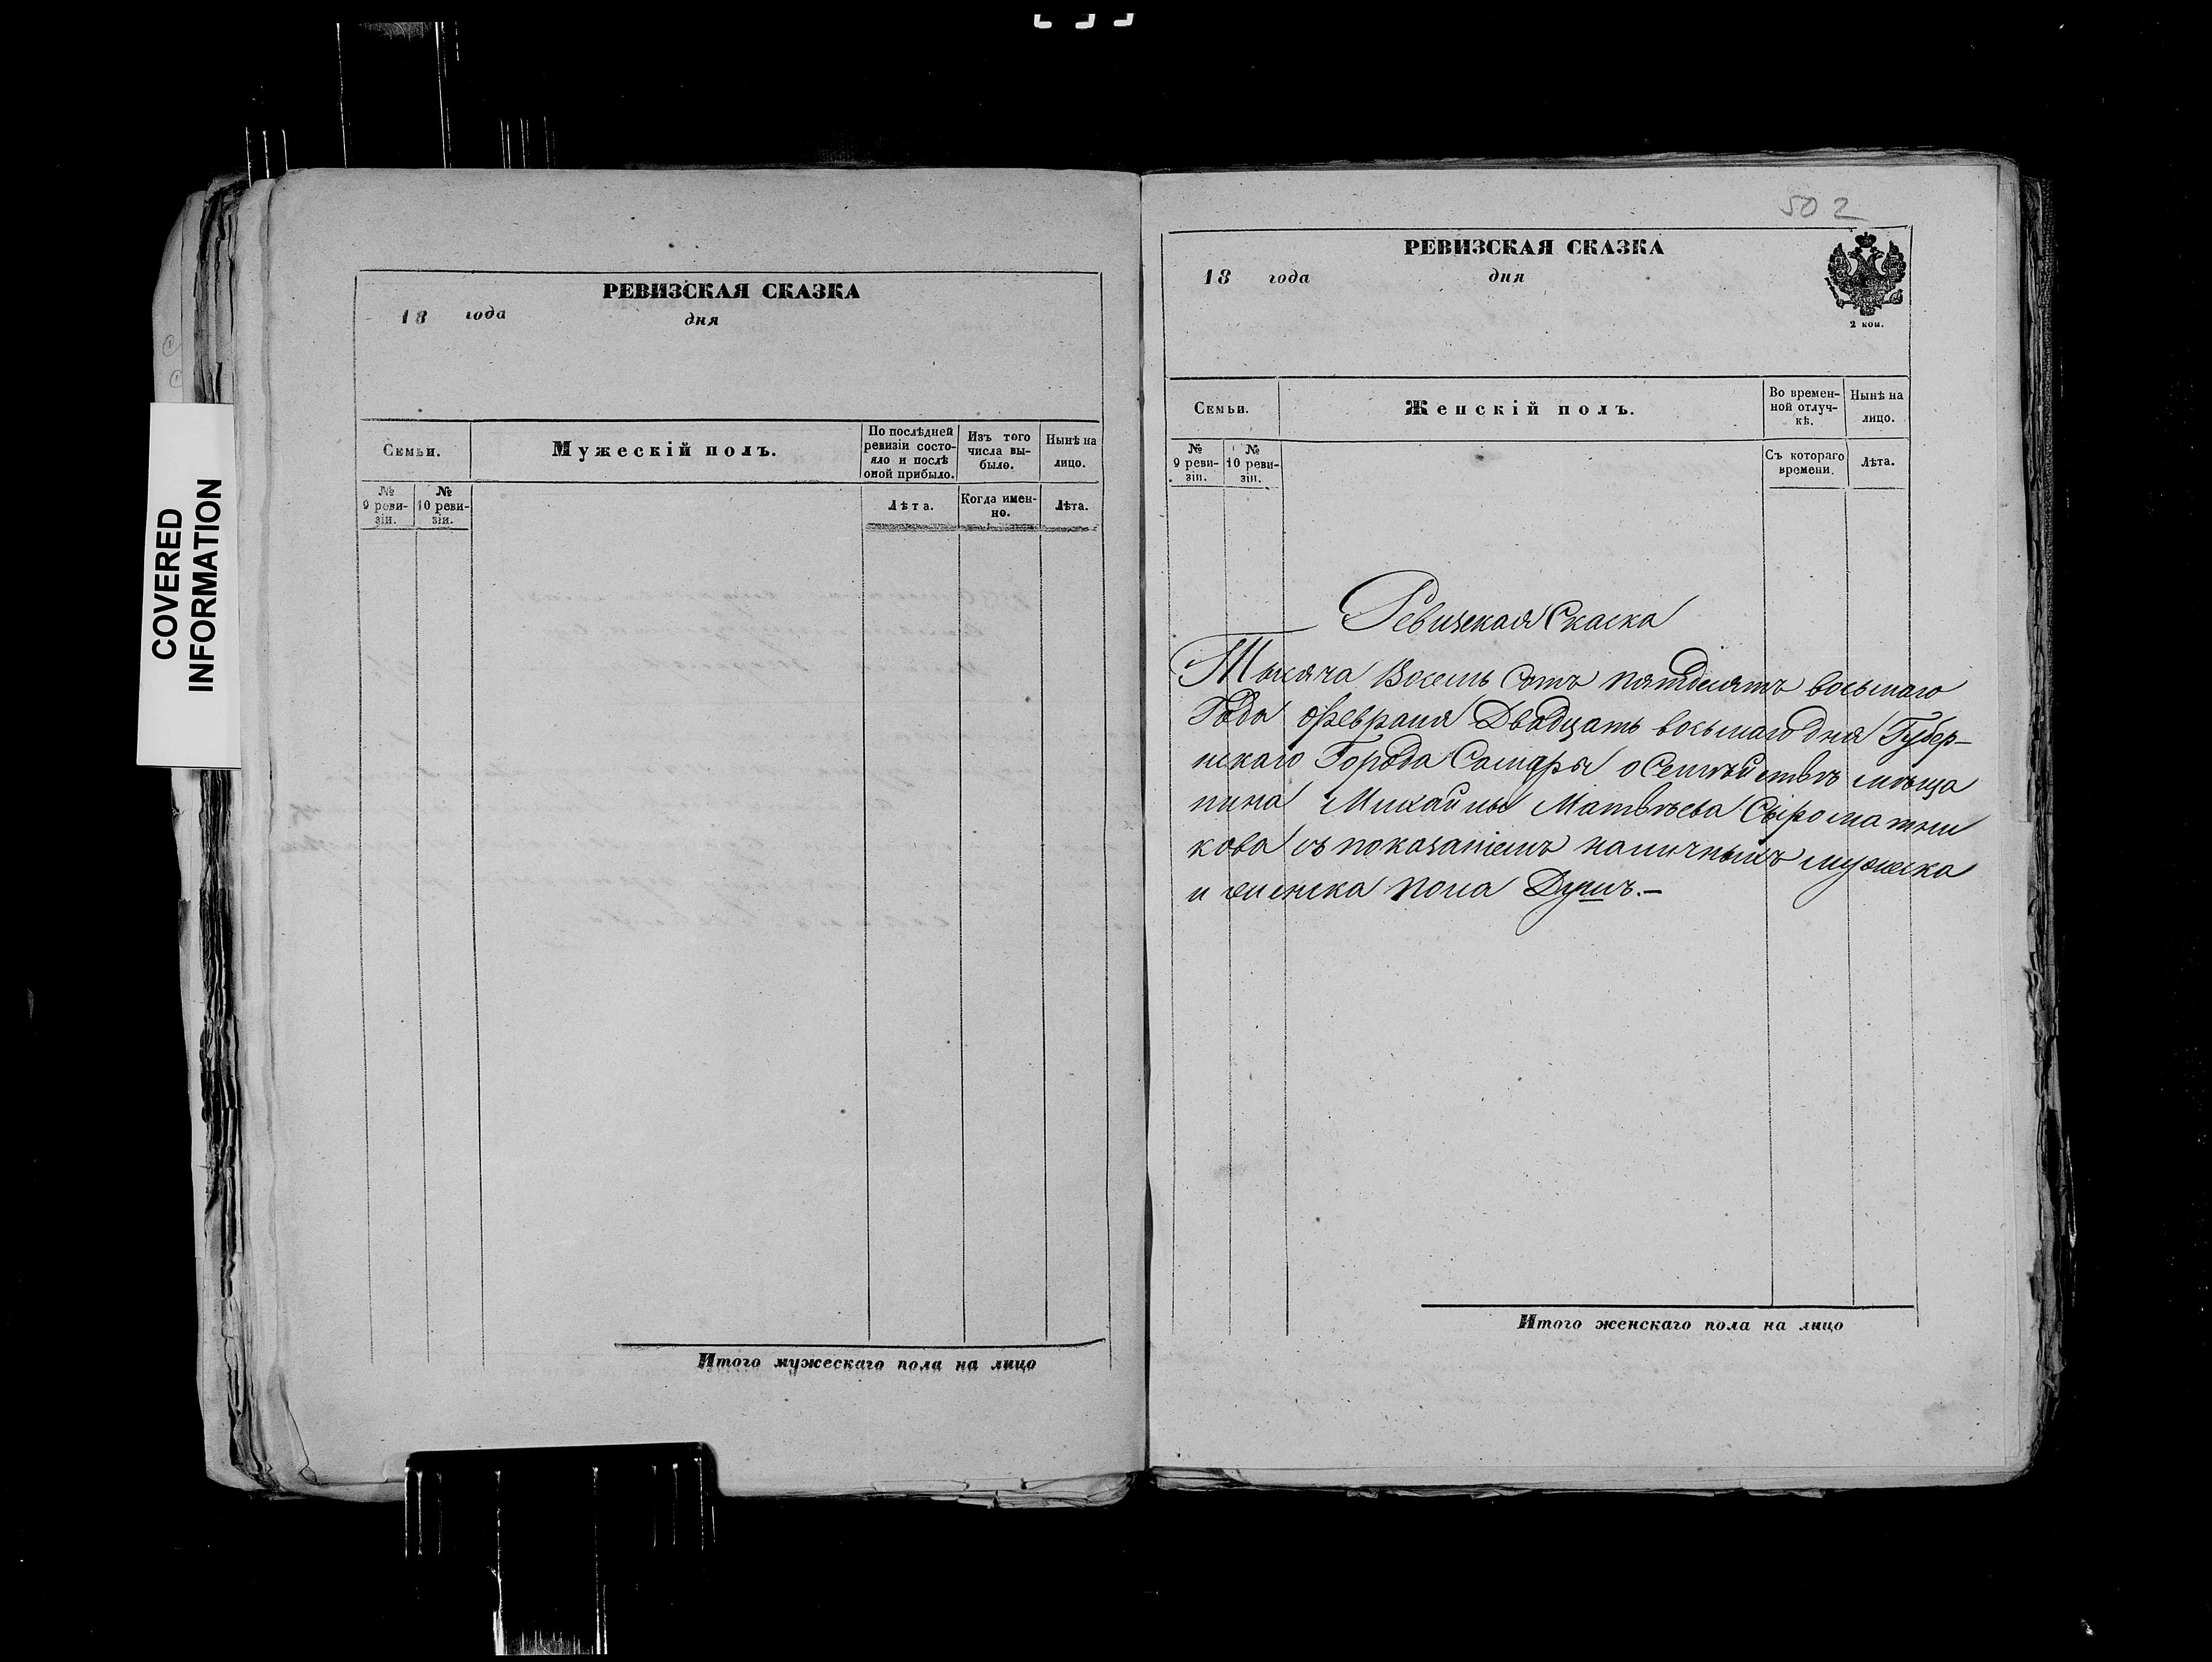 COVERED
INFORMATION
РЕВИЗСКАЯ СКАЗКА
18 года дня
Семьи.
Мужескій полъ.
По послѣдней ревизіи состояло и послѣ оной прибыло.
Изъ того числа выбыло.
Нынѣ на лицо.
№ 9 ревизіи.
№ 10 ревизіи.
Лѣта.
Когда именно.
Лѣта.
Итого мужескаго пола на лицо
502
РЕВИЗСКАЯ СКАЗКА
18 года дня
2 коп.
Семьи.
Женскій полъ.
Во временной отлучкѣ.
Нынѣ на лицо.
№ 9 ревизіи.
№ 10 ревизіи.
Съ котораго времени.
Лѣта.
Ревизская Скаска
Тысяча Восемь Сотъ пятдесятъ восьмаго
Года февраля Двадцать восьмаго дня Губер-
нскаго Города Самары о Семѣйствѣ мѣща
нина Михайлы Матвѣева Сыроматни
кова съ показаніемъ наличныхъ мужска
и женска пола Душъ.-
Итого женскаго пола на лицо